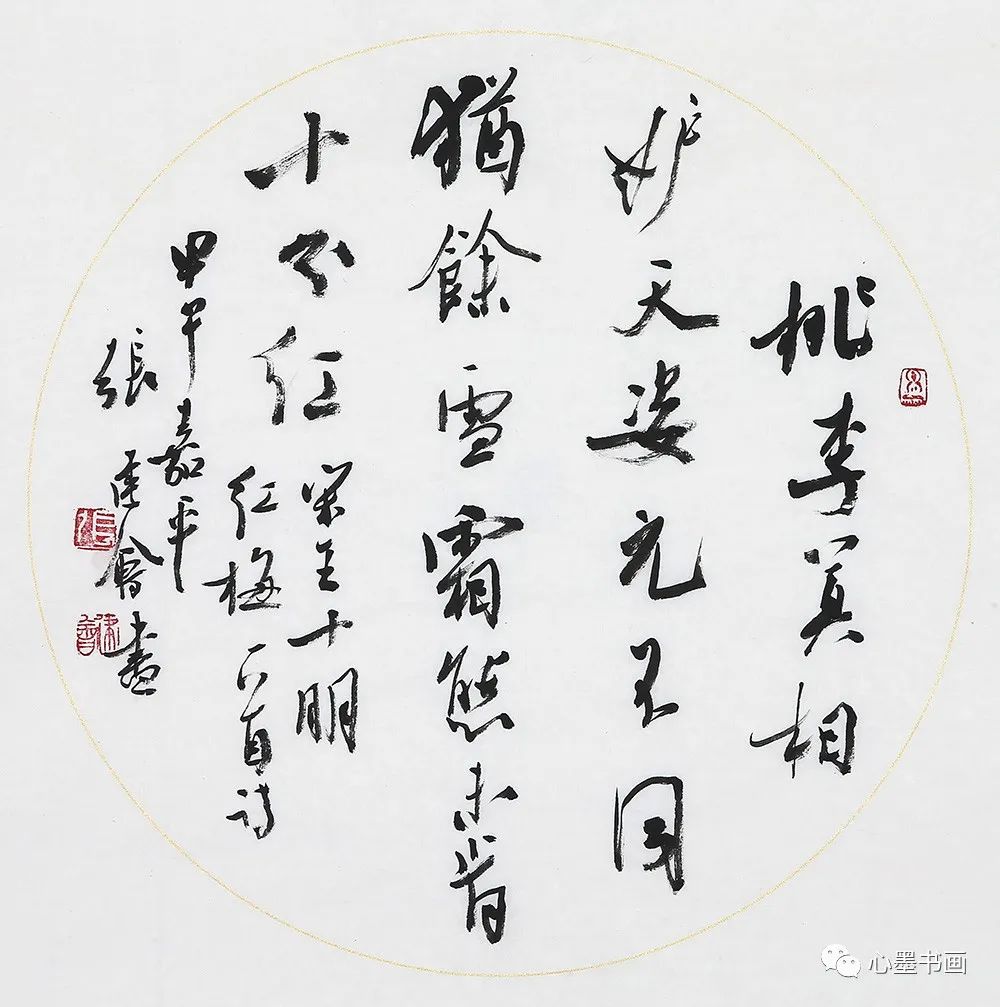 桃李莫相
妒天姿元不同
猶餘雪霜態未肯
十分红
宋王十朋
红梅一首诗
甲午嘉平
張建會書
心墨书画